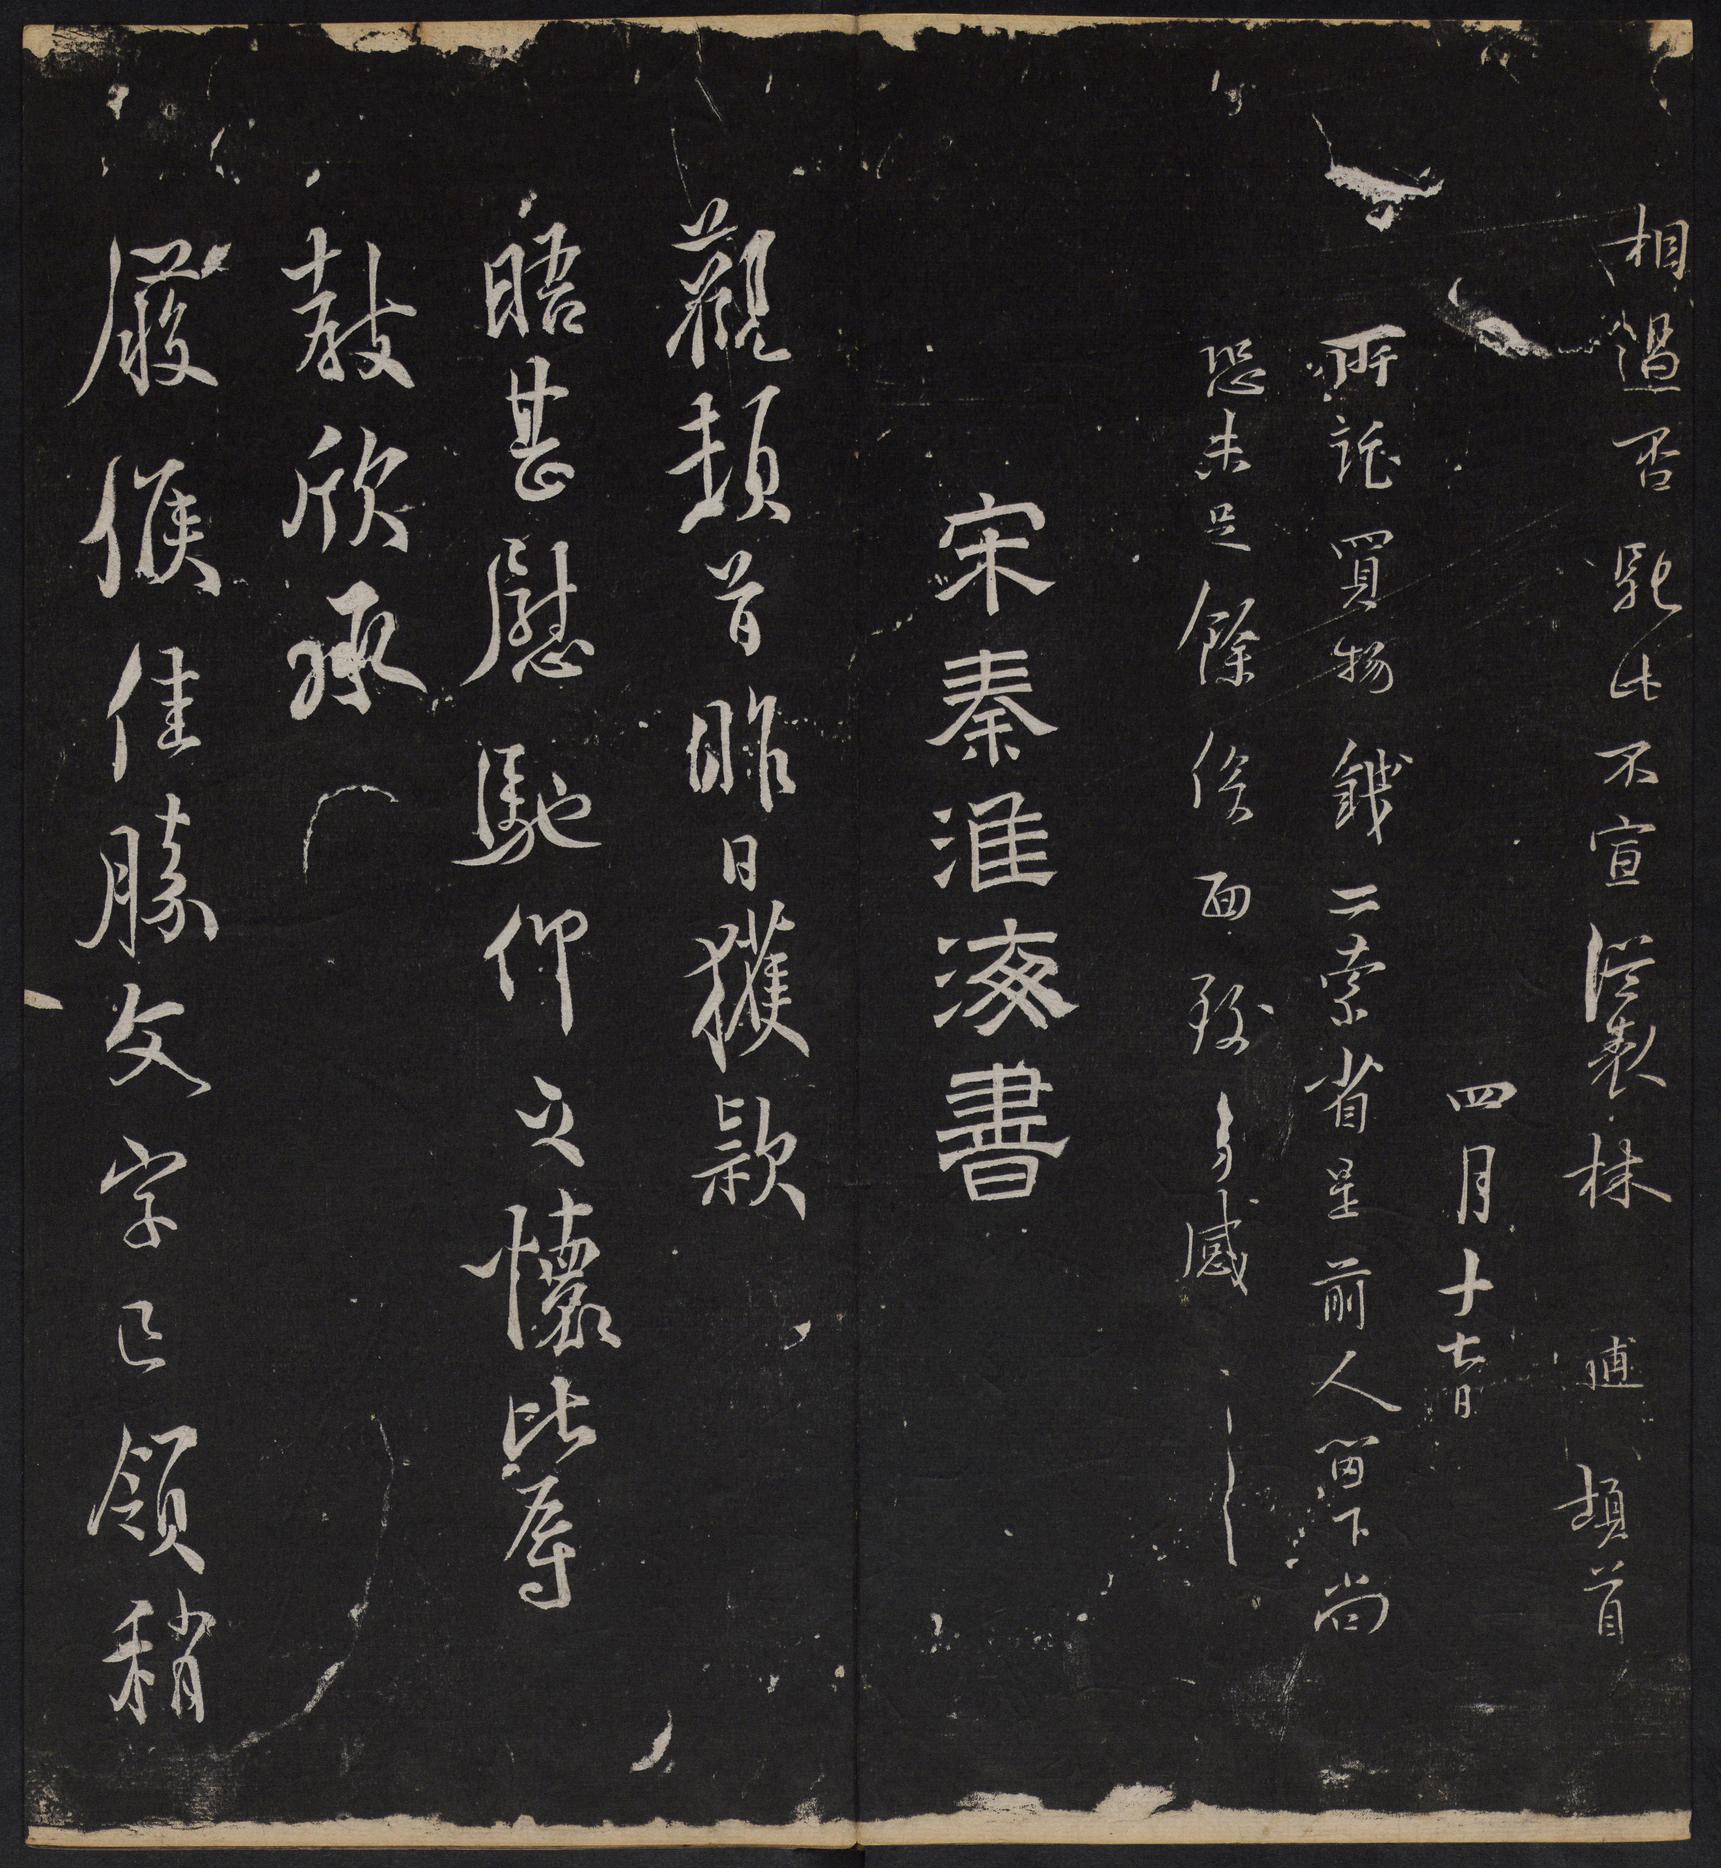 相過否馳此不宣 襟 逋 頓首
四月十七日
所託買物錢二索省星前人留下尚
恐未足餘俟面致多感
宋秦淮海書
觀頓首昨日獲款
晤甚慰馳仰之懷比辱
教欣承
嚴候佳勝文字已領稍